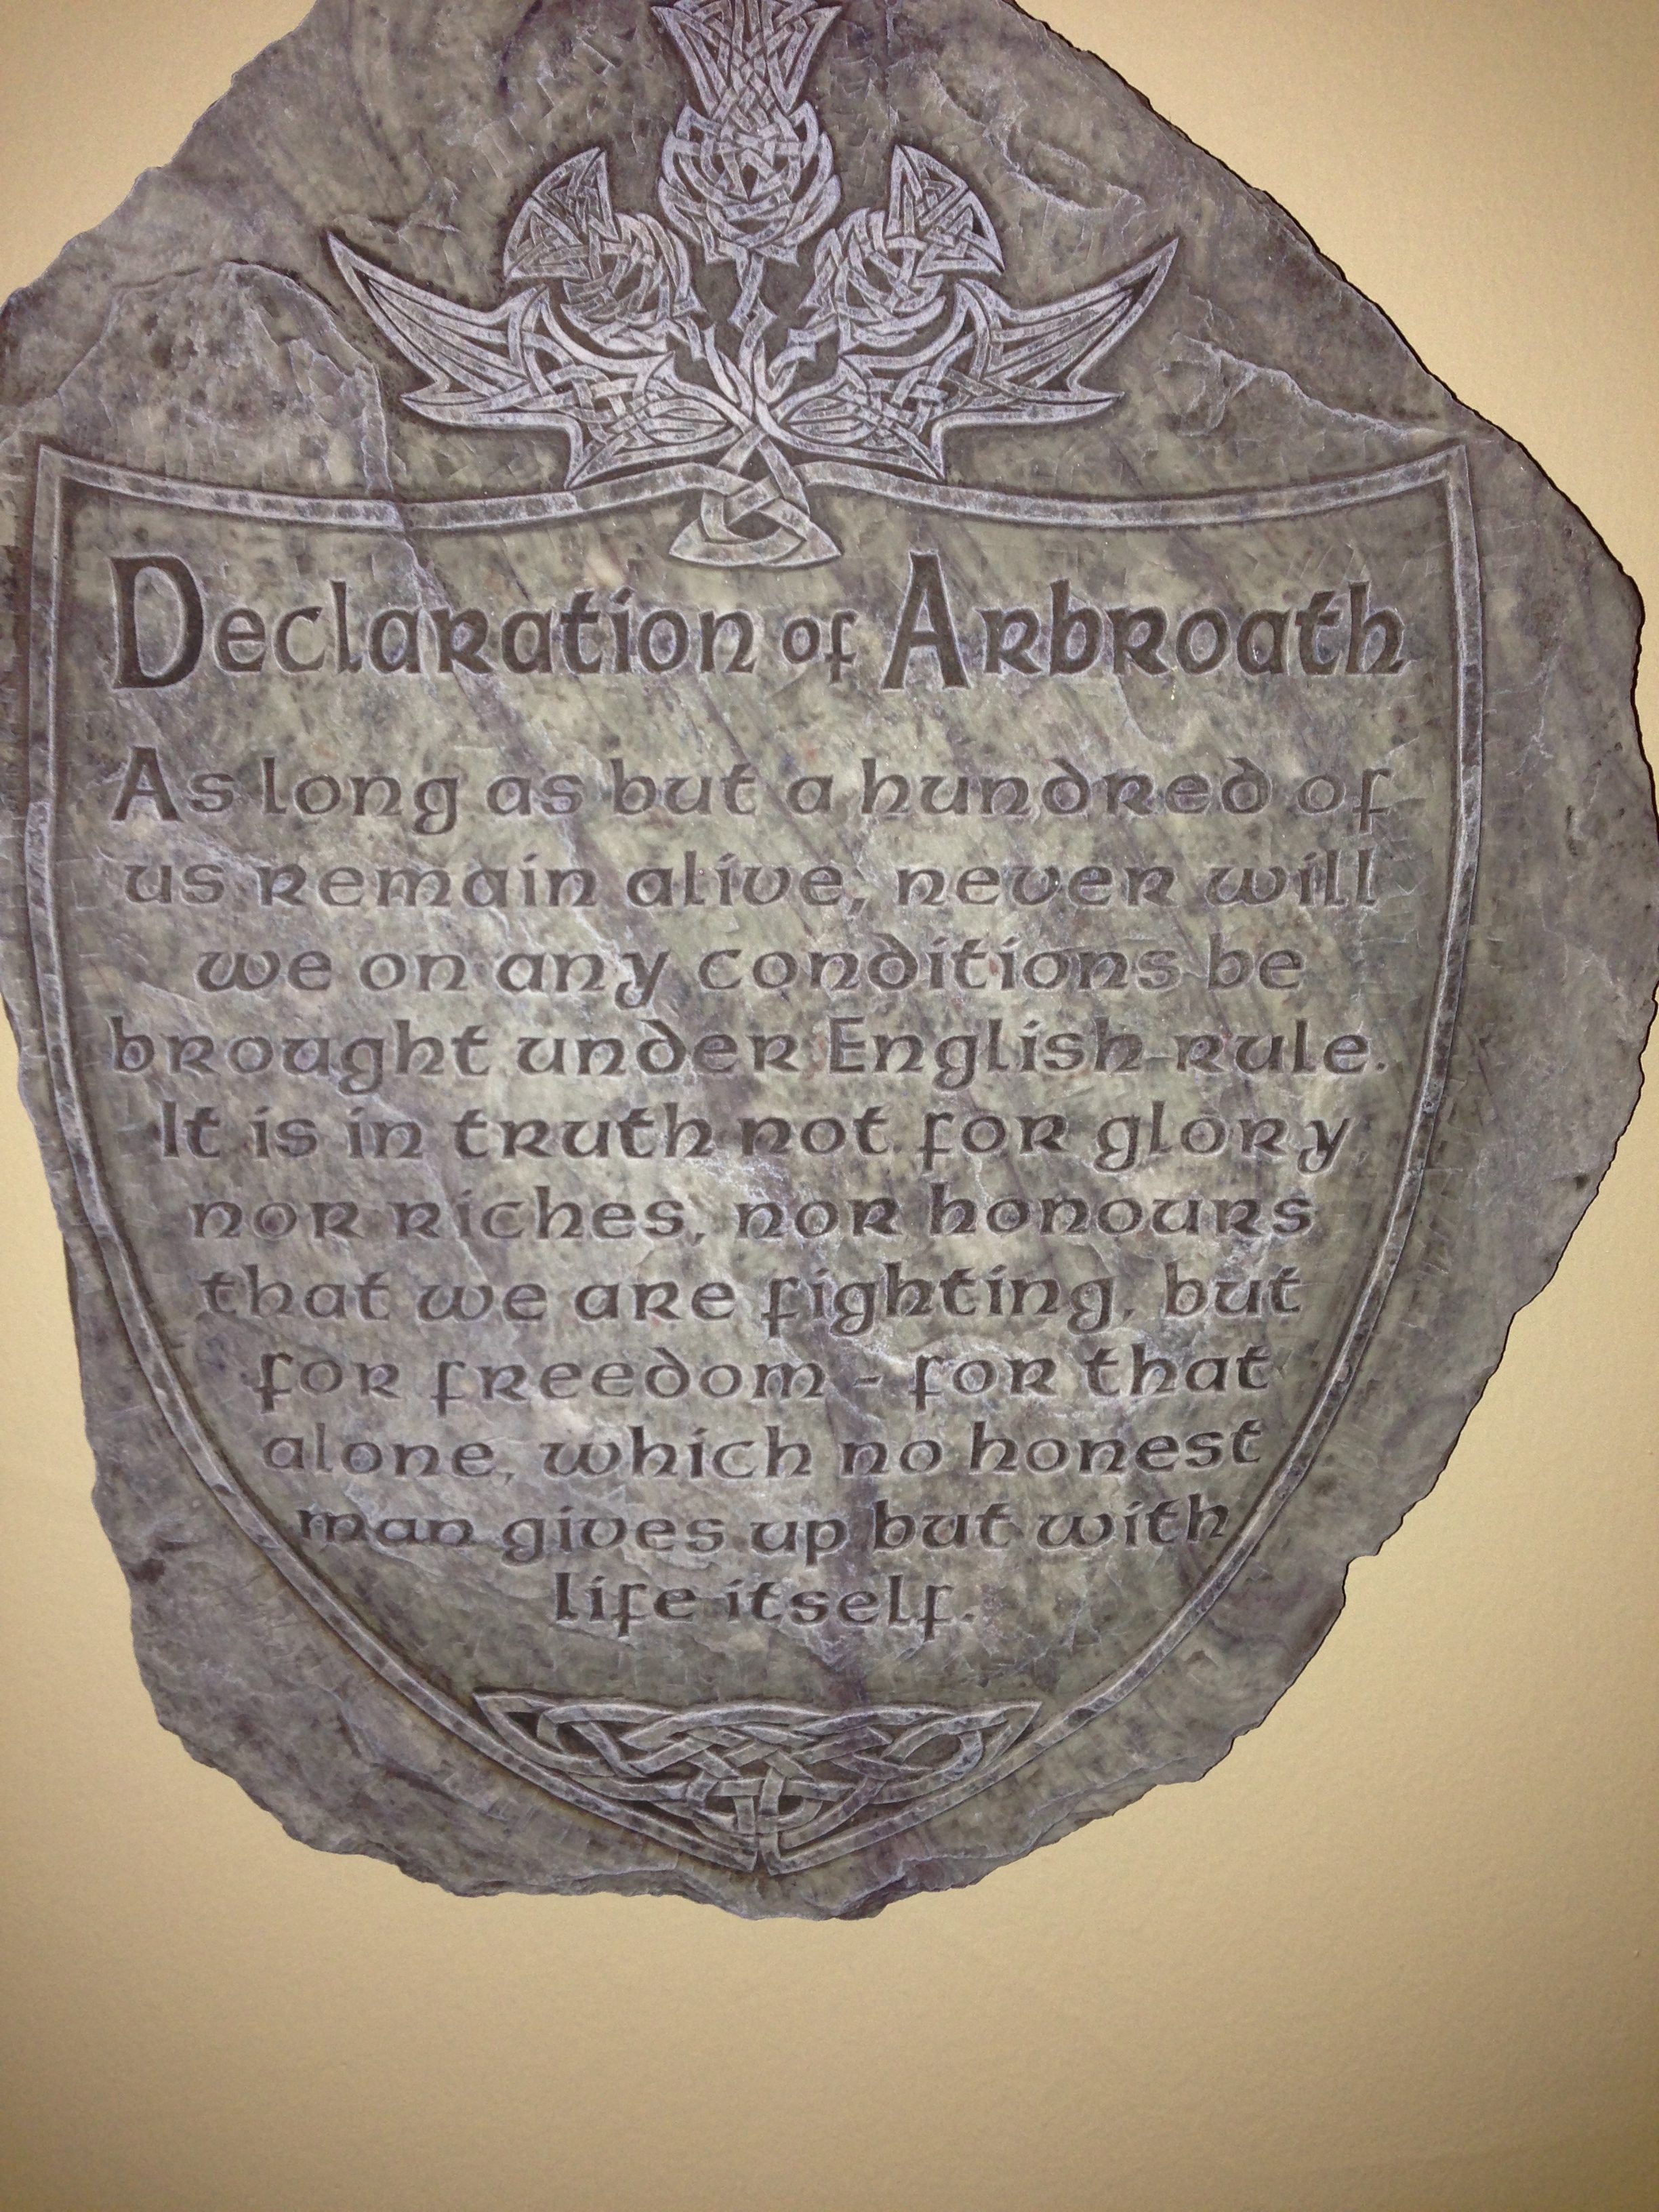 Declaration of Arbroath
As long as but a hundred of
us remain alive, never will
we on any conditions be
brought under English rule.
It is in truth not for glory
nor riches, nor honours
that we are fighting, but
for freedom - for that
alone, which no honest
man gives up but with
life itself.